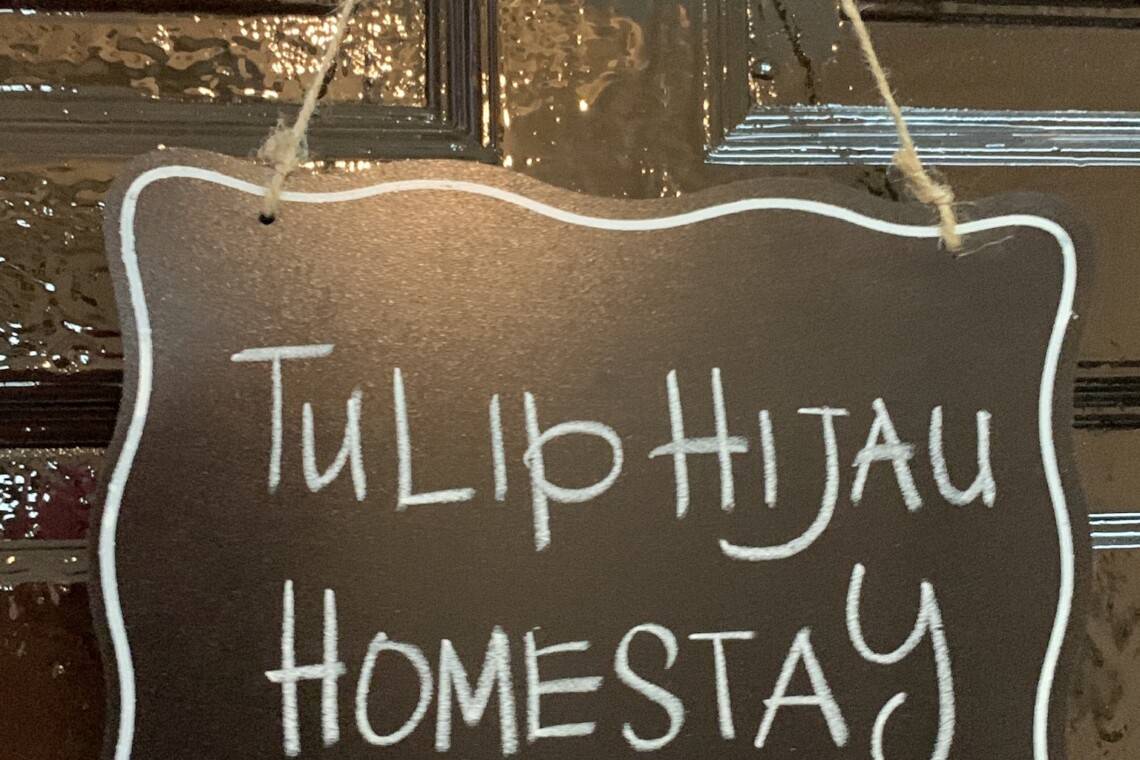 TULIP HIJAU
HOMESTAY